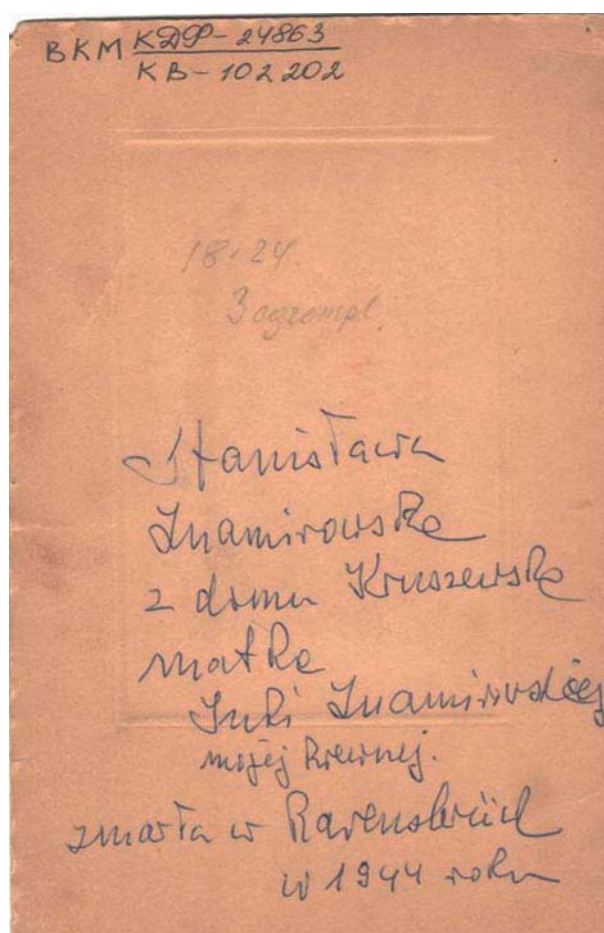 ВКМ КДФ-24863
КВ-102202
18×24.
3 egzempl.
Stanisława
Znamirowska
z domu Kruszewska
matka
Znamirowskiej
mojej krewnej.
zmarła w Ravensbrück
w 1944 roku